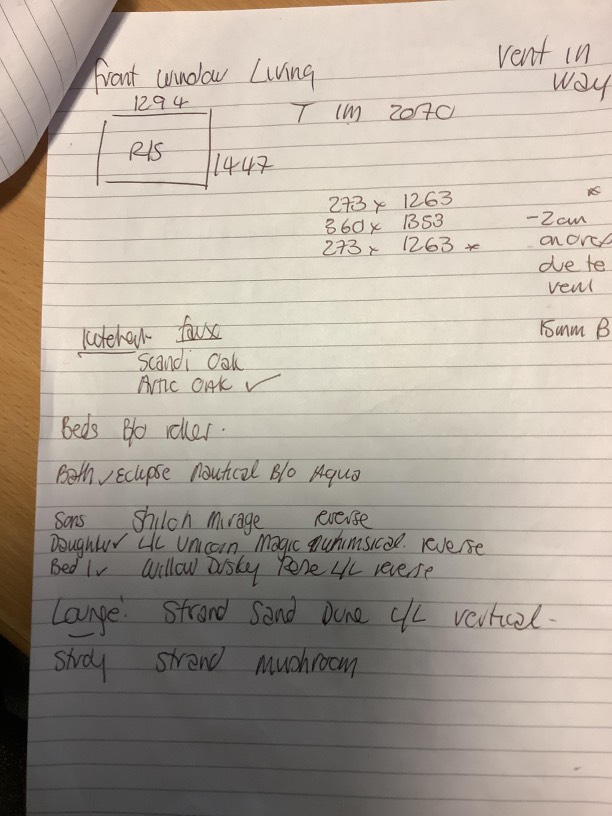 front window Living
vent in
way
1294
T 1M 2070
R/S
1447
273 x 1263
360 x 1353
-2cm
273 x 1263 *
due to
vent
Kitchen faux
15mm B
Scandi Oak
Artic OAK ✓
Beds B/o roller.
Bath ✓ Eclipse Nautical B/o Aqua
Sons Shiloh Mirage reverse
Daughter C/L Unicorn Magic whimsical. reverse
Bed 1 ✓ Willow Dusky Rose C/L reverse
Lounge: Strand Sand Dune C/L vertical-
Study Strand mushroom